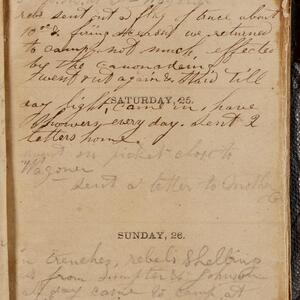 rebs sent out a flag of truce about
firing ceased we returned
to camp, not much effected
by the canonading
went out again & staid till
day light, came in, have
SATURDAY, 25.
showers every day. sent 2
letters home.
went on picket close to
Wagoner
sent a letter to Mother
SUNDAY, 26.
in trenches, rebels shelling
us from Sumpter & Johnson
day came to camp at